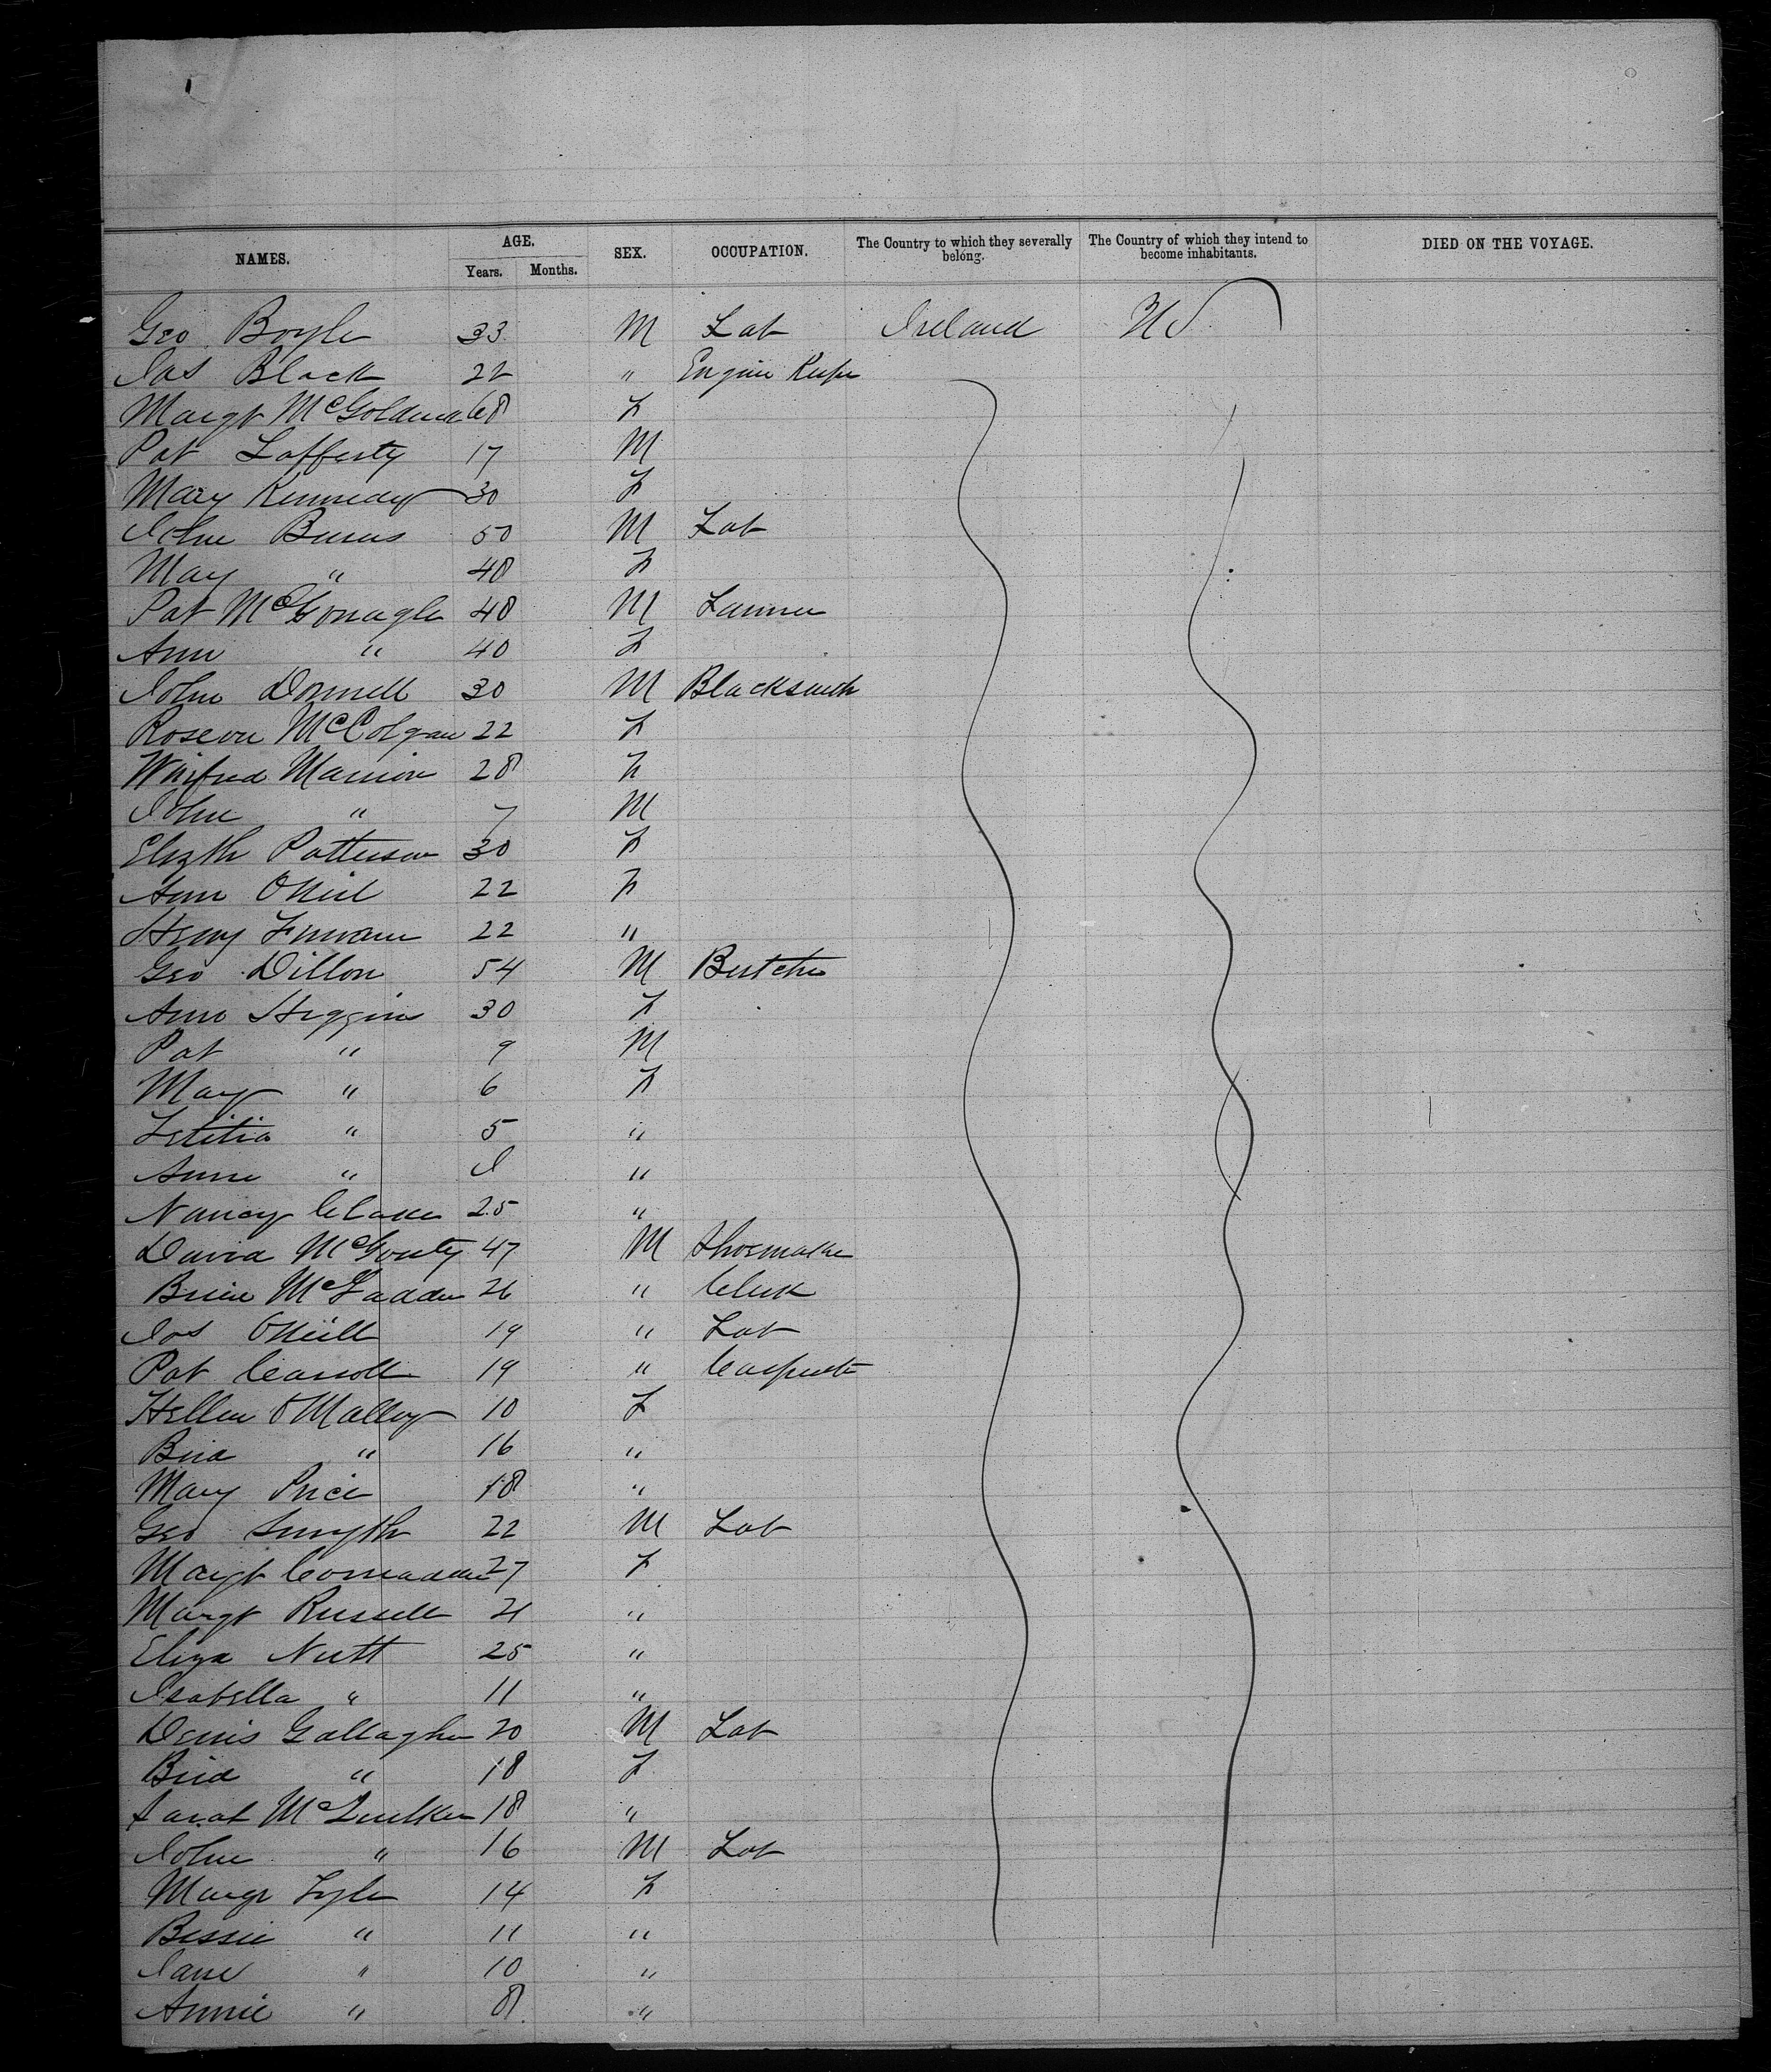 NAMES. AGE. Years. Months. SEX. OCCUPATION. The Country to which they severally belong. The Country of which they intend to become inhabitants. DIED ON THE VOYAGE.
Geo Boyle 33 M Lab Ireland U S
Jas Black 22 " Engine Keeper
Margt McGoldrick 68 F
Pat Lafferty 17 M
Mary Kennedy 30 F
John Burns 50 M Lab
May " 48 F
Pat McGonagle 48 M Farmer
Ann " 40 F
John Donnell 30 M Blacksmith
Roseann McColgan 22 F
Winifred Mannion 28 F
John " 7 M
Elizth Patterson 30 F
Ann ONeil 22 F
22 "
Geo Dillon 54 M Butcher
Ann Higgins 30 F
Pat " 9 M
May " 6 F
Letitia " 5 "
Anne " I "
Nancy 25 "
David McGonty 47 M Shoemaker
McFadden 26 " Clerk
Jos ONeill 19 " Lab
Pat Carroll 19 " Carpenter
Hellen OMalley 10 F
Brid " 16 "
Mary Price 18 "
Geo Smyth 22 M Lab
Margt 27 F
Margt Russell 21 "
Eliza Nutt 25 "
Isabella " 11 "
Denis Gallagher 20 M Lab
Brid " 18 F
Sarah 18 "
John " 16 M Lab
Margt Lyle 14 F
Bessie " 11 "
Jane " 10 "
Annie " 8 "